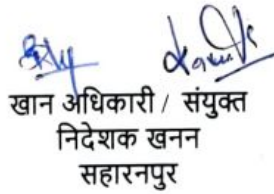 खान अधिकारी / संयुक्त
निदेशक खनन
सहारनपुर